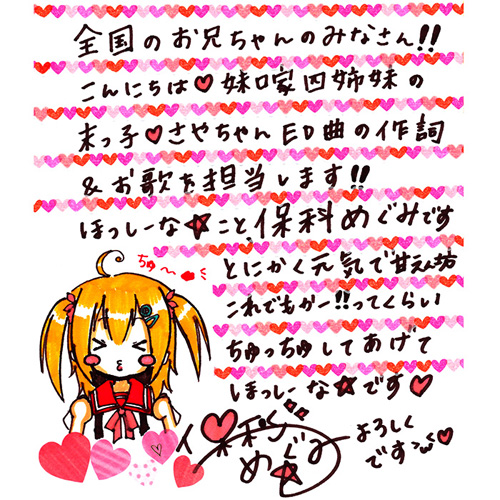 全国のお兄ちゃんのみなさん!!
こんにちは♥妹口家四姉妹の
末っ子♥さやちゃんED曲の作詞
&お歌を担当します!!
ほっしーな★こと、保科めぐみです
とにかく元気で甘えん坊
これでもかー!!ってくらい
ちゅっちゅしてあげて
ほっしーな★です♥
ちゅ〜
保科
めぐみ
よろしく
です